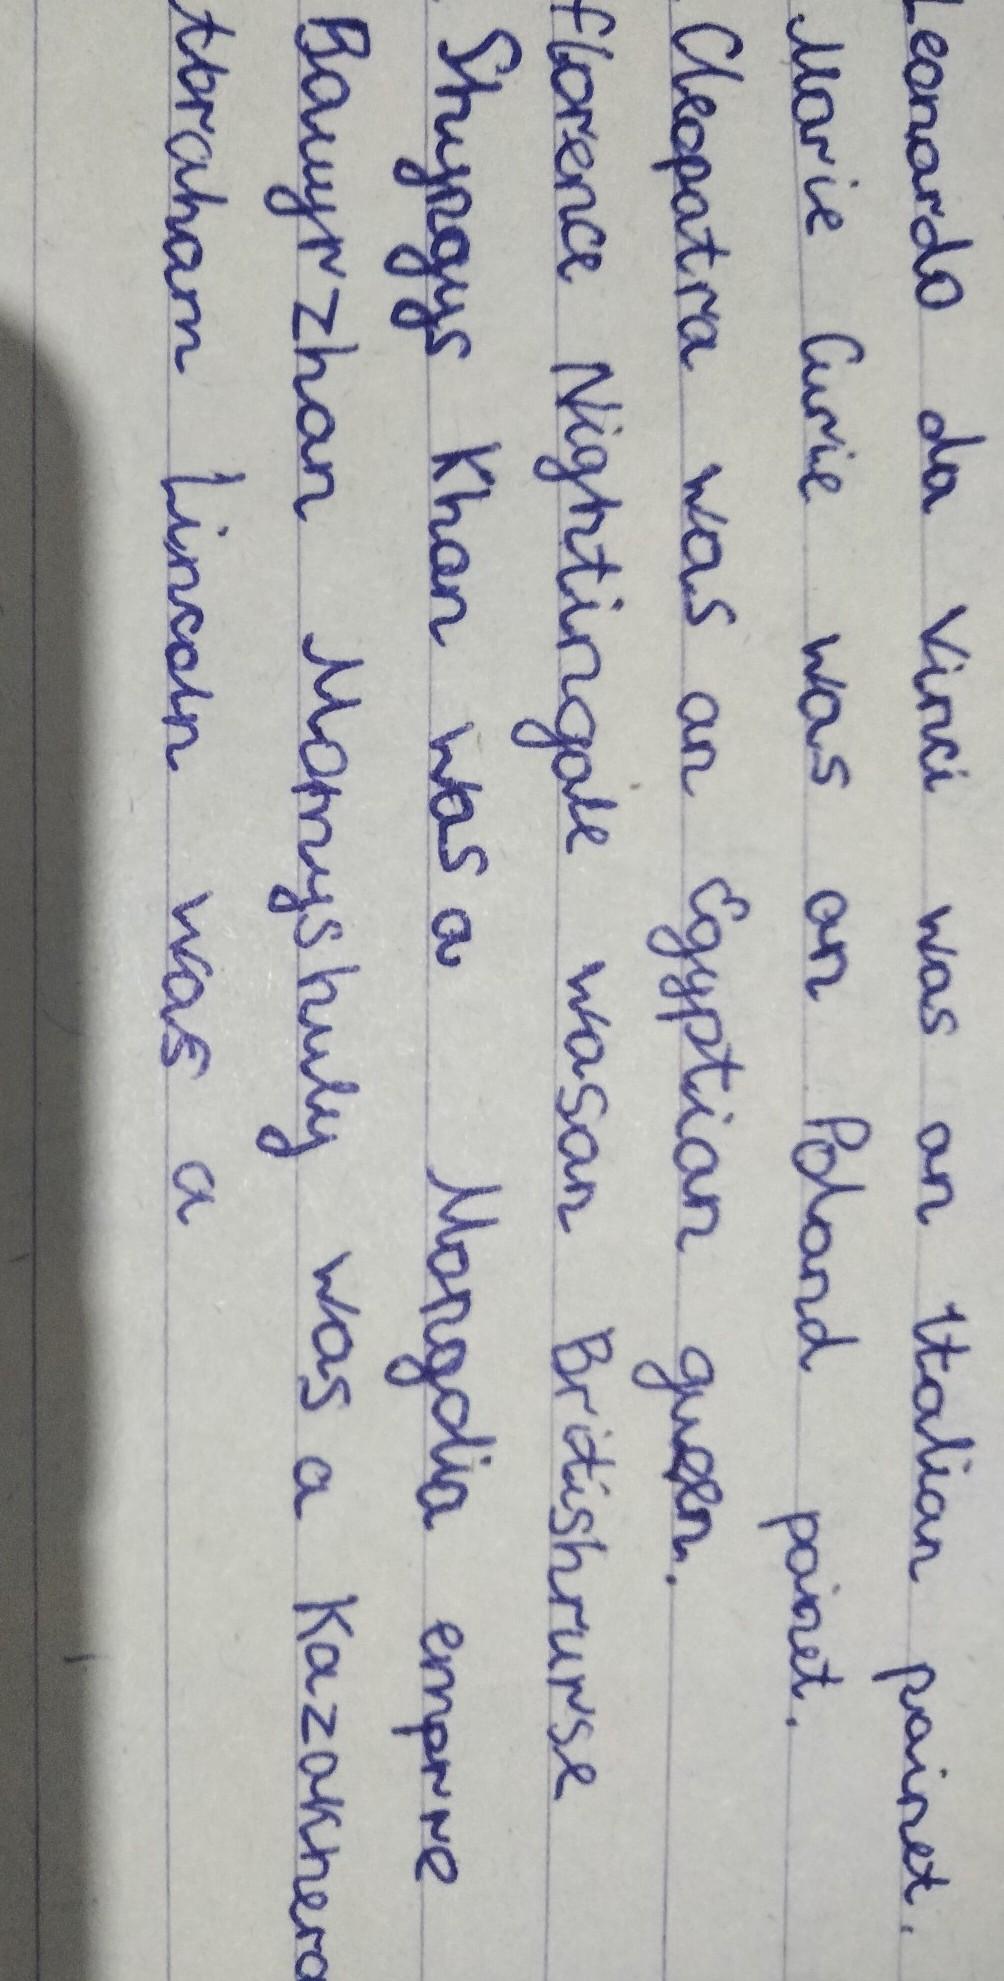 Leonardo da Vinci was an Italian painet.
Marie Curie was an Poland painet.
Cleopatra was an Egyptian queen.
Florence Nightingale wasan Britishnurse
Shyngys Khan was a Mongolia emprre
Bauyrzhan Momyshuly was a Kazakhero
Abraham Lincoln was a